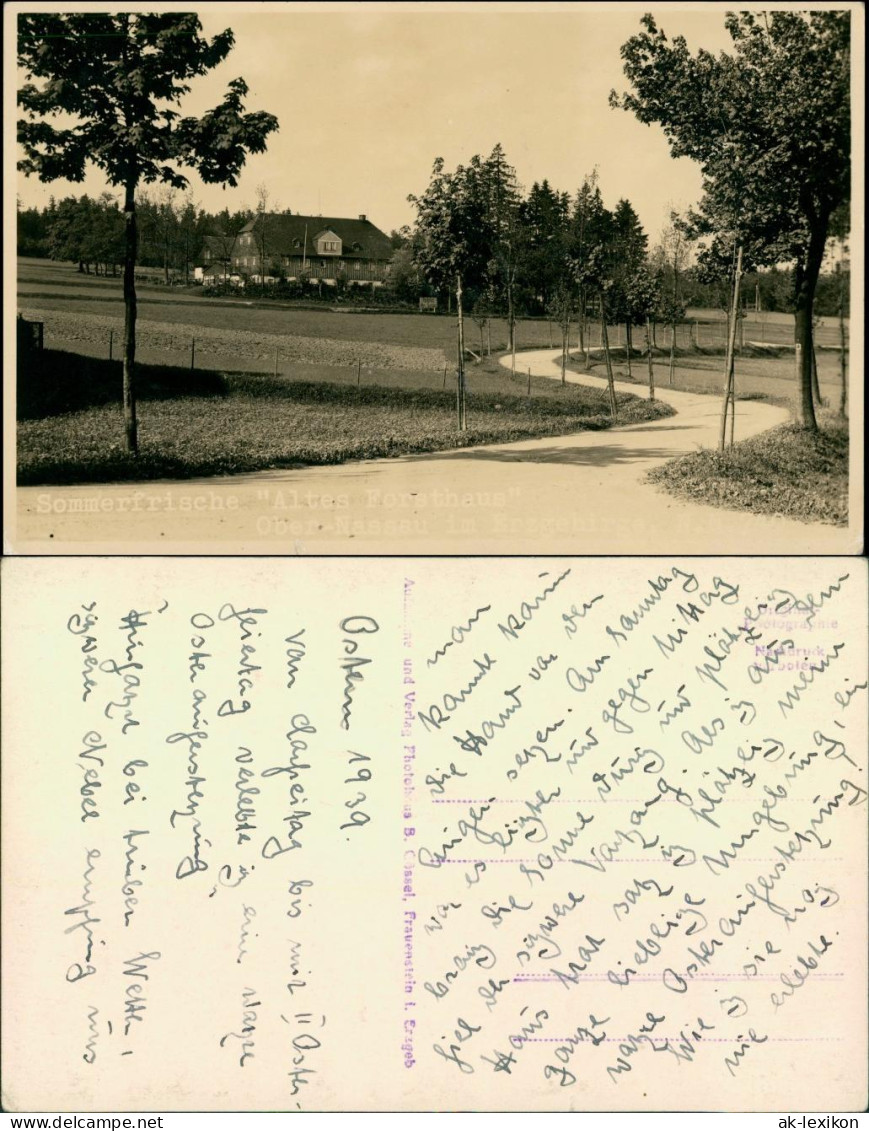 Sommerfrische "Altes Forsthaus"
Ober-Nassau im Erzgebirge.
Ostern 1939.
Von Karfreitag bis mit II Oster-
feiertag verlebte ich eine wahre
Osterauferstehung,
Hinfahrt bei trüben Wetter,
schwerer Nebel empfing uns
man
konnte kaum
die Hand vor den
Augen sehen. Am Sonntag
war es lichter und gegen Mittag
brach die Sonne durch und plötzlich
fiel der schwere Vorhang. Als ich aus dem
Haus trat sah ich plötzlich meine
ganze liebliche Umgebung, eine
wahre Osterauferstehung,
wie ich sie noch
nie erlebte.
Aufnahme und Verlag Photohaus B. Gössel, Frauenstein i. Erzgeb
Photographie
Nachdruck
verboten
ak-lexikon